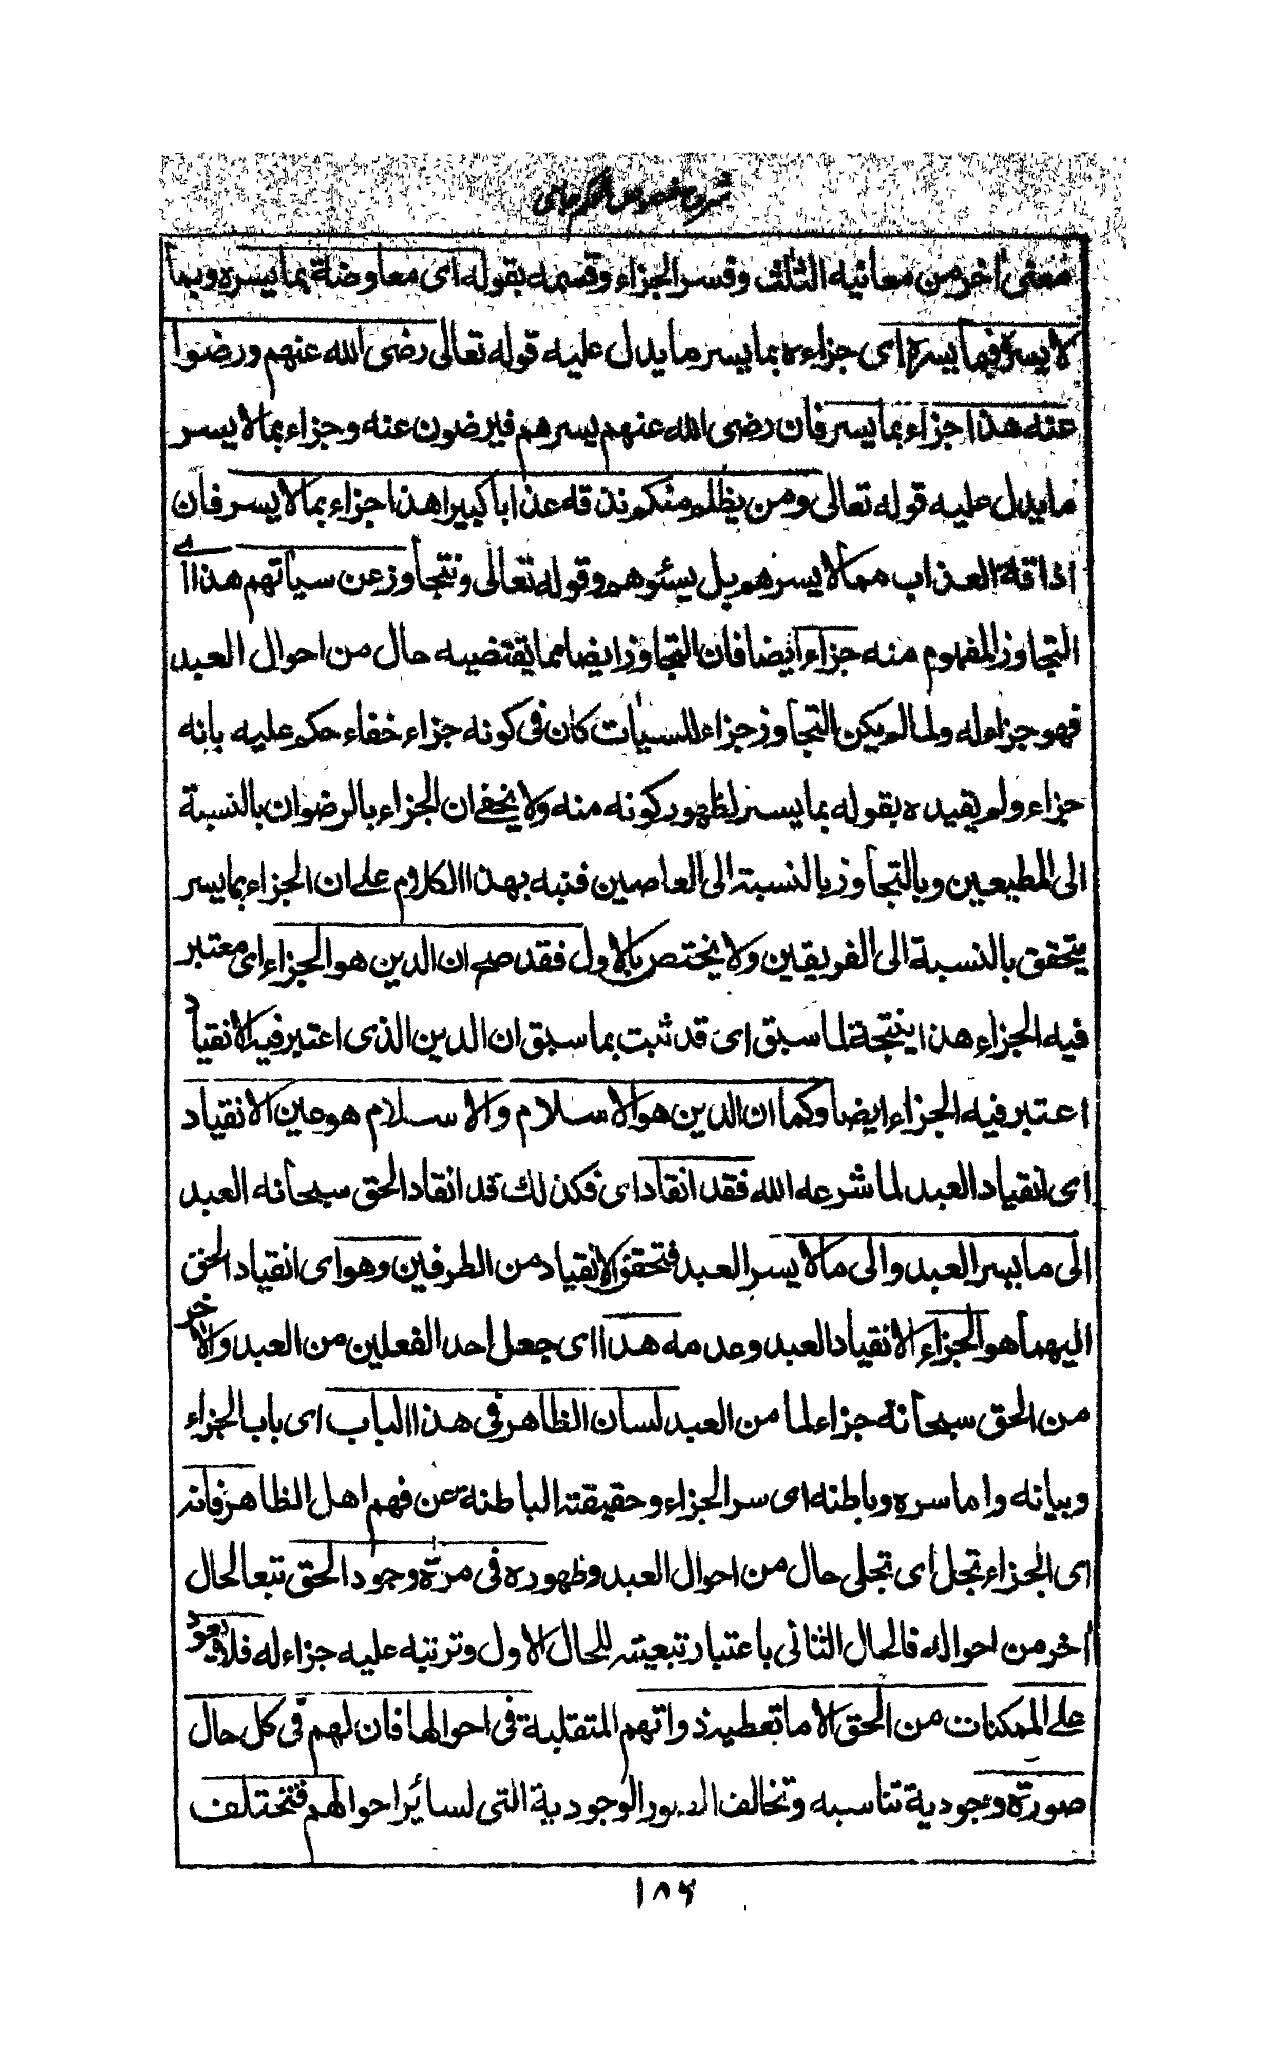 شرح فصوص الحكم جامى
معنى اخر من معانيه الثلثة وفسر الجزاء وقسمه بقوله اى معاوضة بما يسره وبما
لا يسره فيما يسره اى جزاءه بما يسر ما يدل عليه قوله تعالى رضى الله عنهم ورضوا
عنه هذا جزاء بما يسر فان رضى الله عنهم يسرهم فيرضون عنه وجزاء بما لا يسر
ما يدل عليه قوله تعالى ومن يظلم منكم نذقه عذابا كبيرا هذا جزاء بما لا يسر فان
اذاقة العذاب مما لا يسرهم بل يسئوهم وقوله تعالى ونتجاوز عن سياتهم هذا اى
التجاوز المفهوم منه جزاء ايضا فان التجاوز ايضا مما يقتضيه حال من احوال العبد
فهو جزاء له ولما لم يكن التجاوز جزاء للسيات كان فى كونه جزاء خفاء حكم عليه بانه
جزاء ولم يقيده بقوله بما يسر لظهور كونه منه ولا يخفى ان الجزاء بالرضوان بالنسبة
الى المطيعين وبالتجاوز بالنسبة الى العاصين فنبه بهذا الكلام على ان الجزاء بما يسر
يتحقق بالنسبة الى الفريقين ولا يختص بالاول فقد صح ان الدين هو الجزاء اى معتبر
فيه الجزاء هذا ينتجة لما سبق اى قد ثبت بما سبق ان الدين الذى اعتبر فيه الانقياد
اعتبر فيه الجزاء ايضا وكما ان الدين هو الاسلام والاسلام هو عين الانقياد
اى انقياد العبد لما شرعه الله فقد انقاد اى فكذلك قد انقاد الحق سبحانه العبد
الى ما يسر العبد والى ما لا يسر العبد فتحقق الانقياد من الطرفين وهو اى انقياد الحق
اليهما هو الجزاء لانقياد العبد وعدمه هذا اى جعل احد الفعلين من العبد والاخر
من الحق سبحانه جزاء لما من العبد لسان الظاهر فى هذا الباب اى باب الجزاء
وبيانه واما سره وباطنه اى سر الجزاء وحقيقته الباطنة عن فهم اهل الظاهر فانه
اى الجزاء تجل اى تجلى حال من احوال العبد وظهوره فى مرآة وجود الحق تبعا لحال
اخر من احواله فالحال الثانى باعتبار تبعيته للحال الاول وترتبه عليه جزاء له فلا يعود
على الممكنات من الحق الا ما تعطيه ذواتهم المتقلبة فى احوالها فان لهم فى كل حال
صورة وجودية تناسبه وتخالف الصور الوجودية التى لسائر احوالهم فتختلف
١٨٦